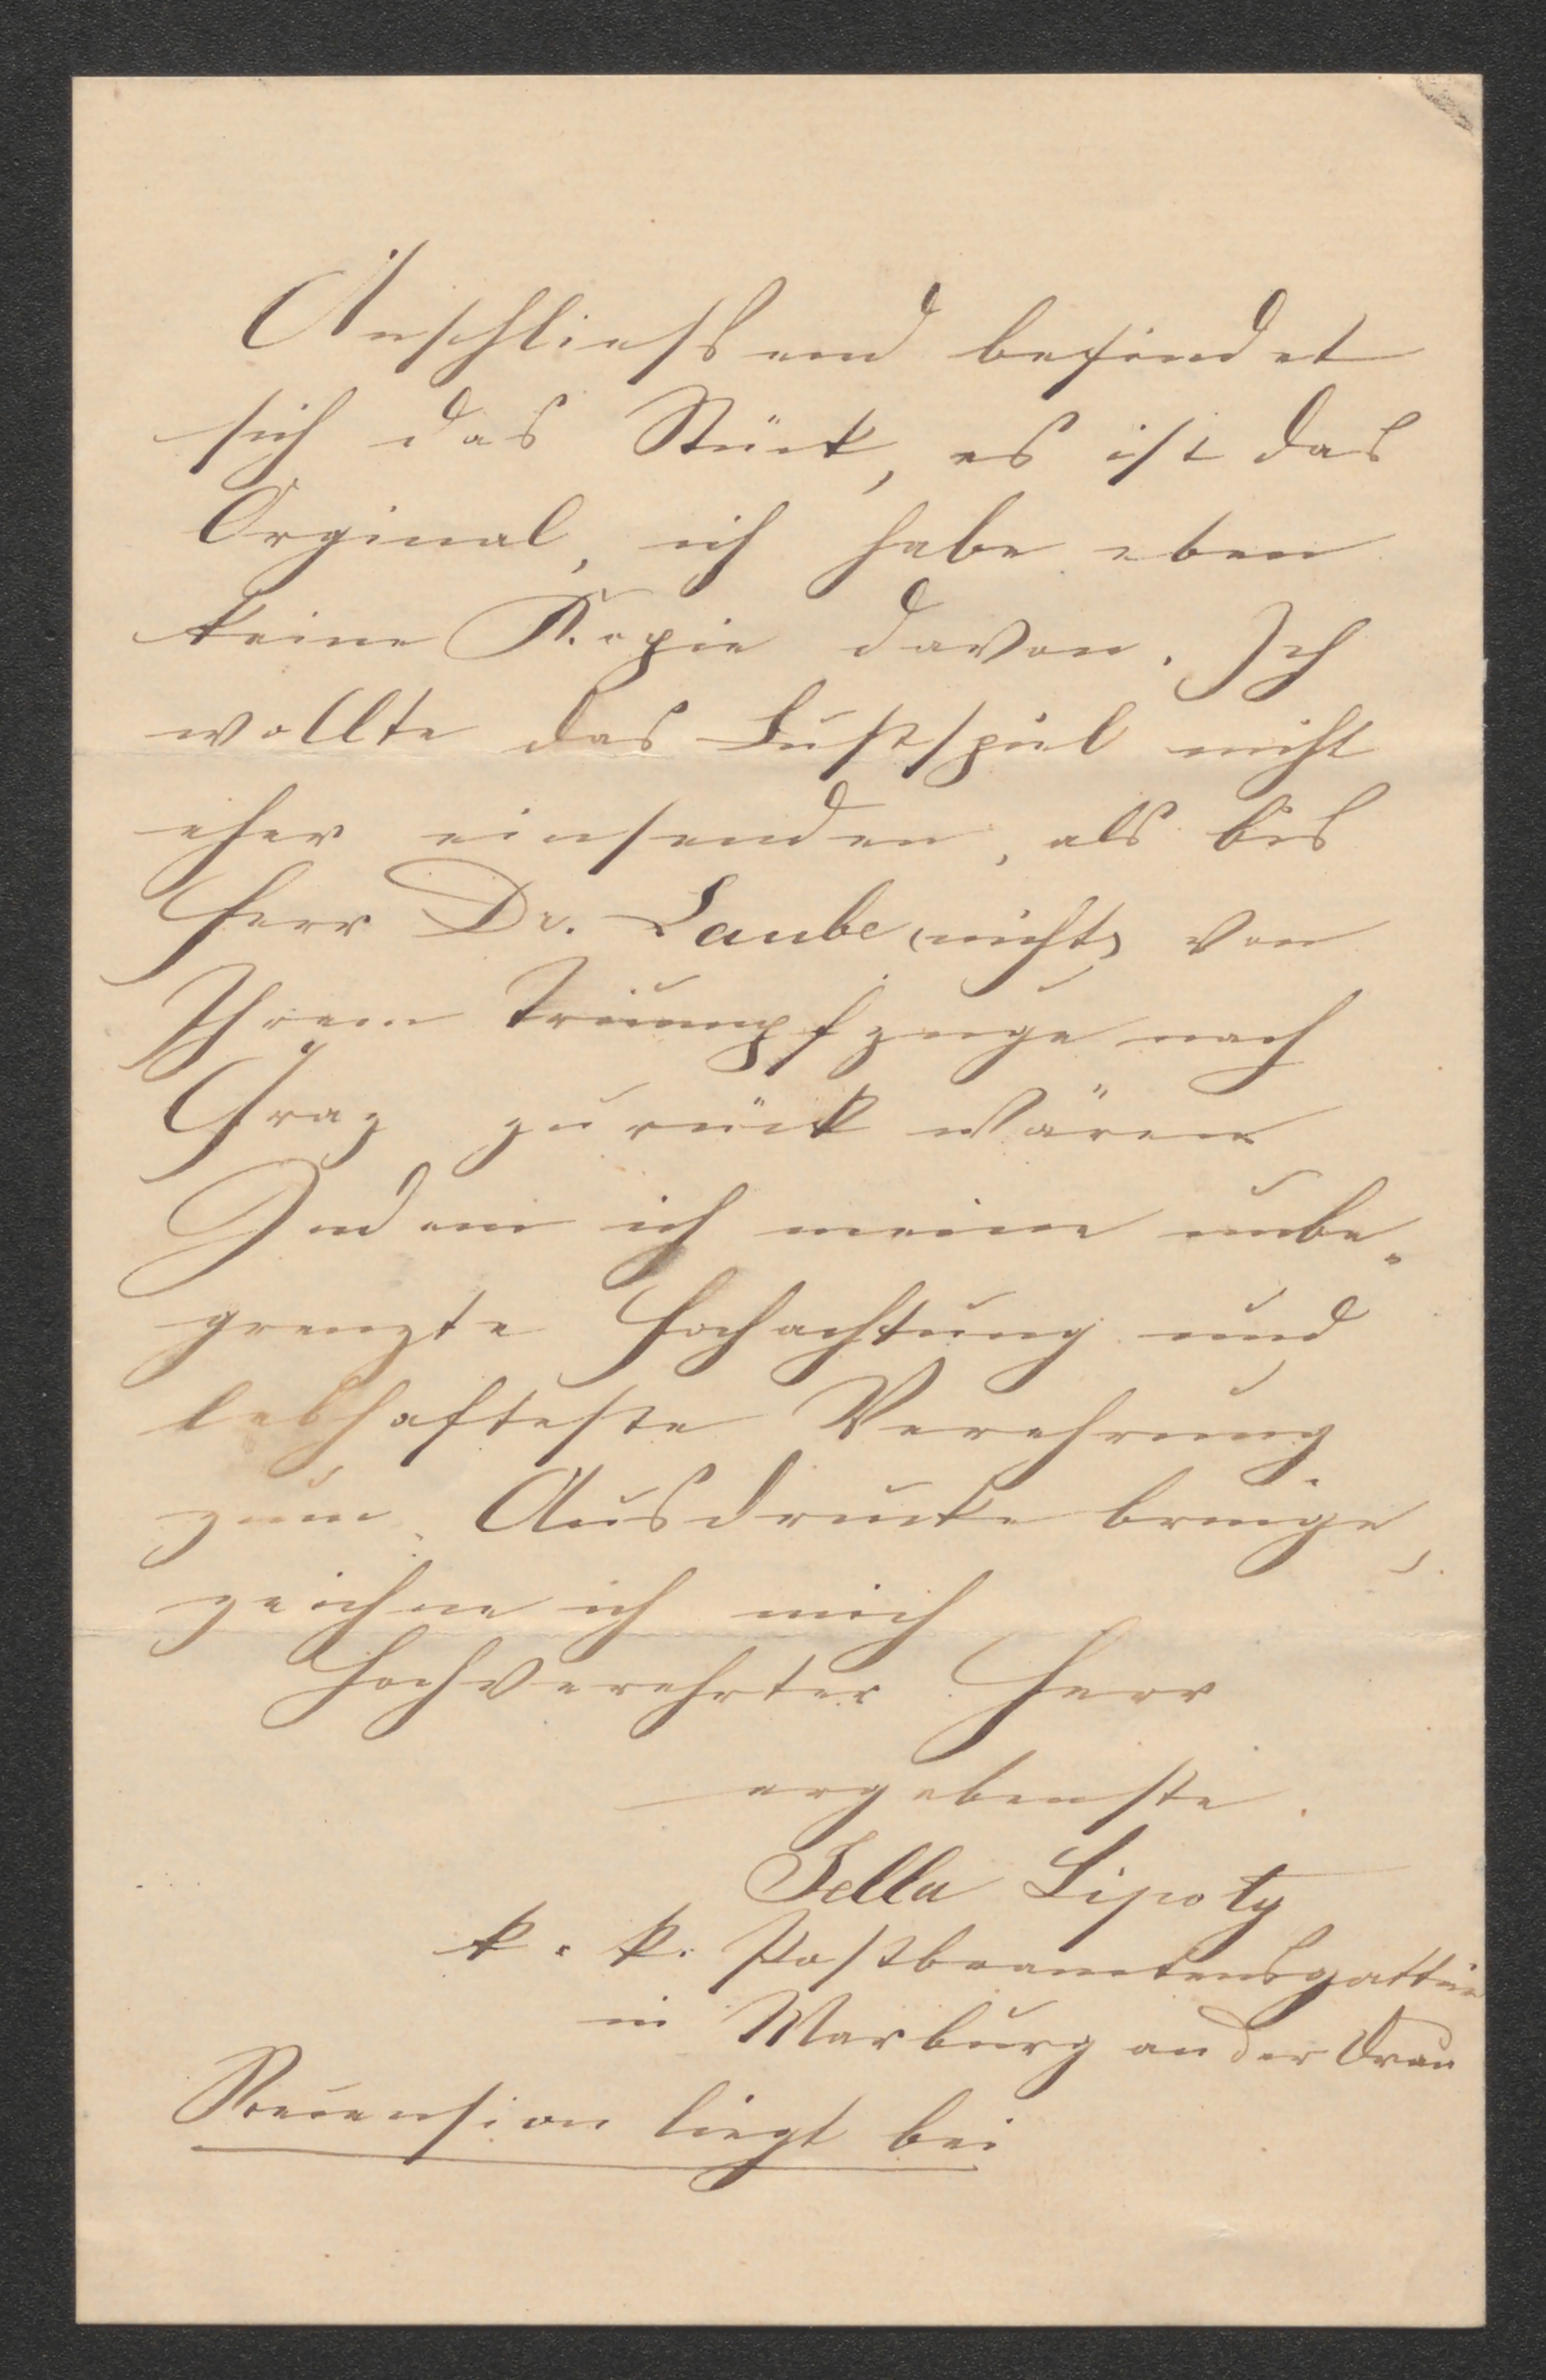 Anschließend befindet
sich das Stück, es ist das
Orginal, ich habe eben
keine Kopie davon. Ich
wollte das Lustspiel nicht
eher einsenden, als bis
Herr Dr. Laube (nicht) von
Ihrem Triumpfzuge nach
Graz zurück wären
Indem ich meine unbe„
grenzte Hochachtung und
lebhafteste Verehrung
zum Ausdrucke bringe,
zeichne ich mich
Hochverehrter Herr
ergebenste.
Jella Lipoty
k. k. Postbeamtensgattin
in Marburg an der Drau
Recension liegt bei